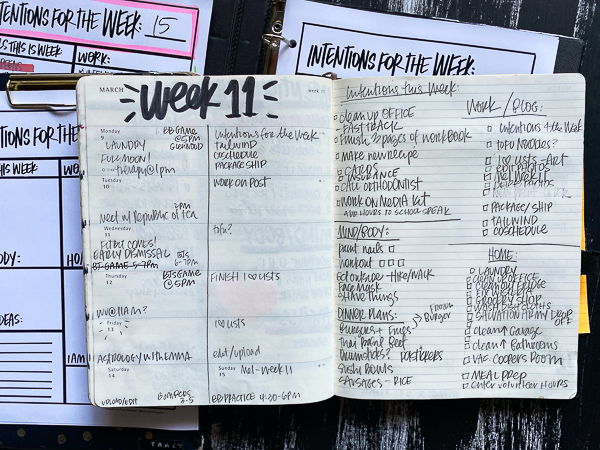 INTENTIONS FOR THE WEEK: 15
THIS WEEK:
WORK:
INTENTIONS FOR THE WEEK:
INTENTIONS FOR
THIS WEEK
WORK
BODY:
HO
IDEAS:
I AM
MARCH
week 11
week 11
Monday
9
BB GAME
@5PM
GLENWOOD
LAUNDRY
FULL MOON!
therapy@1pm
intentions for the week
tailwind
coschedule
PACKAGE SHIP
Tuesday
10
WORK ON POST
7PM
meet w/ Republic of tea
Wednesday
11
tofu?
EARLY DISMISSAL
BJS
6-7PM
BJ GAME 5-7PM
Thursday
12
BJS GAME
@5PM
FINISH I ♡ LISTS
WW@11AM?
Friday
13
I ♡ LISTS
ASTROLOGY WITH EMMA
edit/upload
Saturday
14
Sunday
15
Mel-Week 11
UPLOAD/EDIT
4-5
BB PRACTICE 4:30-6PM
Intentions this Week:
clean up OFFICE
FAST TRACK
Finish 3 pages of workbook
make new recipe
CARDS
INSURANCE
CALL ORTHODONTIST
WORK ON MEDIA KIT
ADD HOURS TO SCHOOL SPEAK
MIND/BODY:
paint nails
workout
Get outside - HIKE/WALK
Face Mask
Shave Things
DINNER PLANS:
Burgers + Fries
Burger
Thai Basil Beef
Drumsticks? Potstickers
Sushi Bowls
Sausages - RICE
WORK/BLOG:
intentions 4 the Week
TOFU NOODLES?
I ♡ LISTS - Art
EDIT PHOTOS
Mel Week 11
PACKAGE/SHIP
TAILWIND
COSCHEDULE
HOME:
LAUNDRY
CLEAN UP OFFICE
CLEAN OUT FRIDGE
GROCERY SHOP
SALVATION ARMY DROP
OFF
clean ↑ Garage
clean ↑ Bathrooms
VAC COOPERS ROOM
MEAL PREP
Enter volunteer Hours